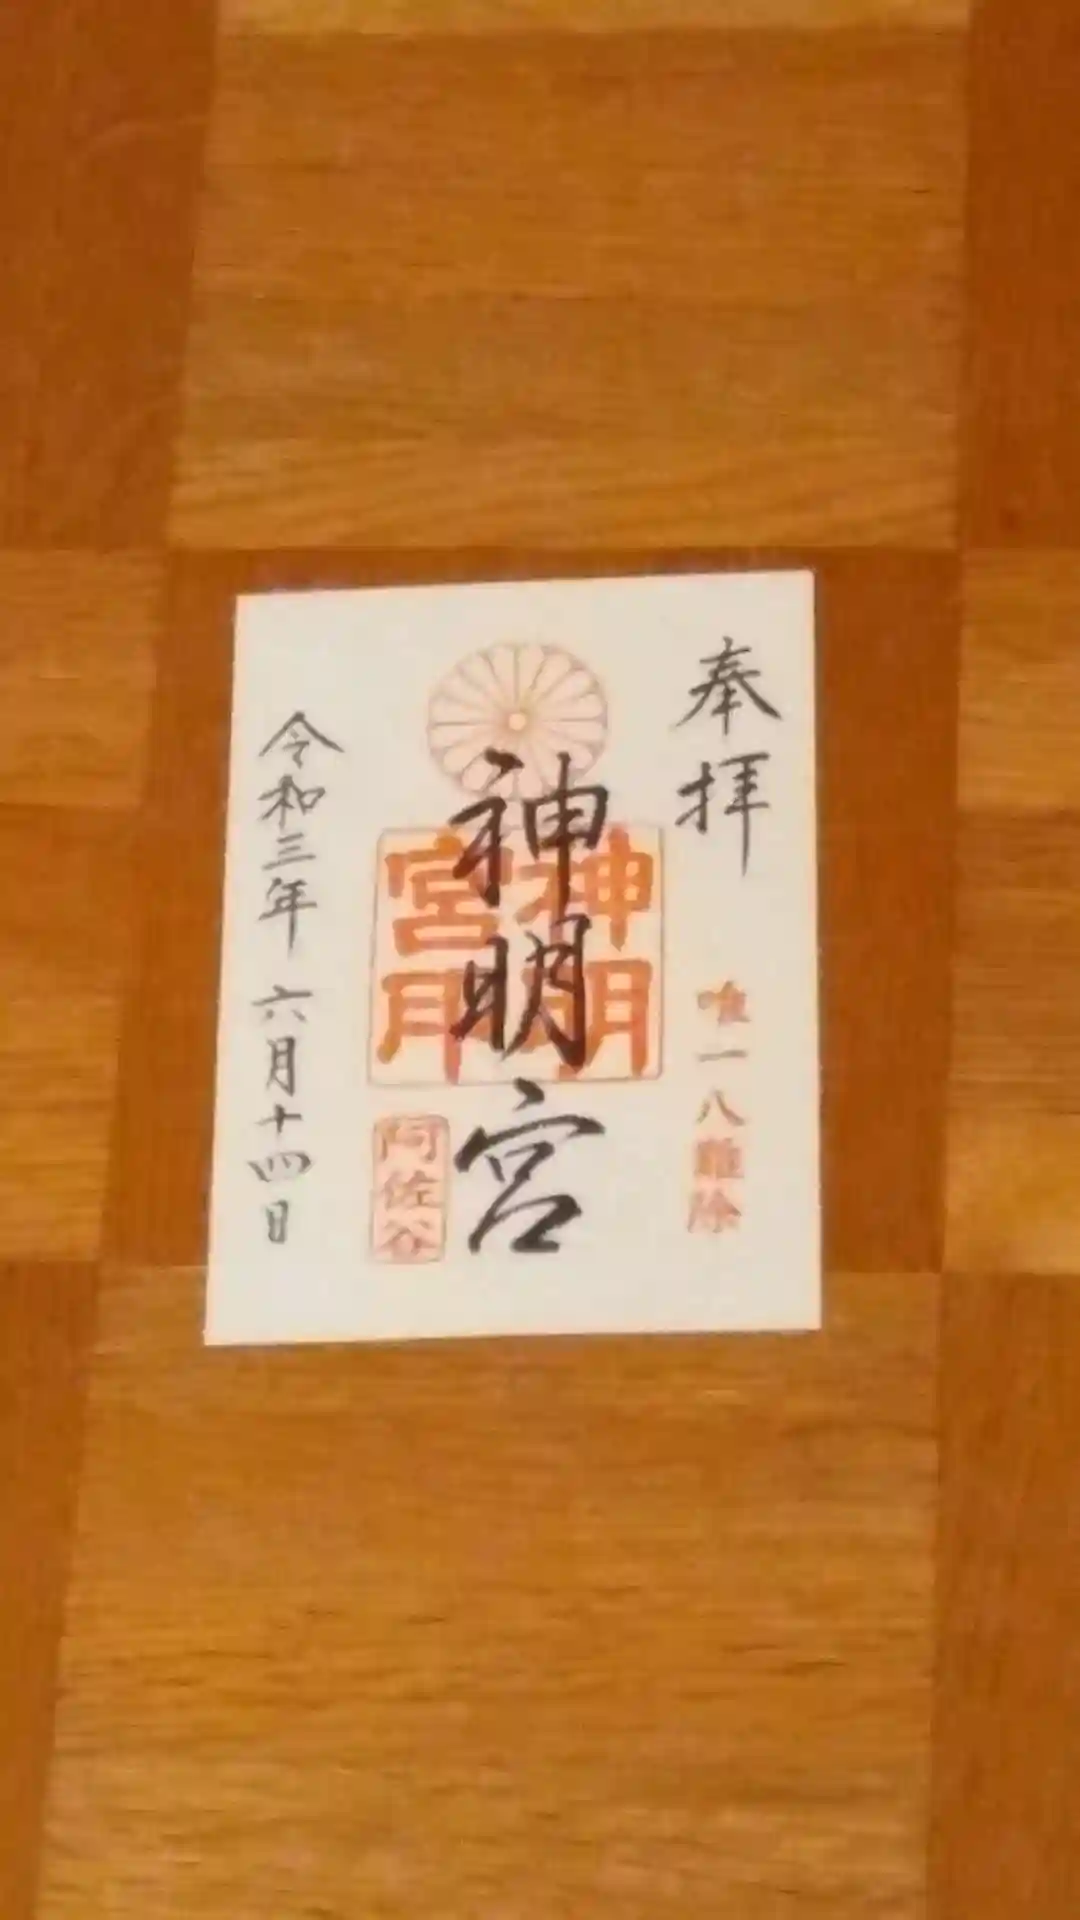 奉拝
唯一八難除
神明宮
神明宮
阿佐谷
令和三年六月十四日